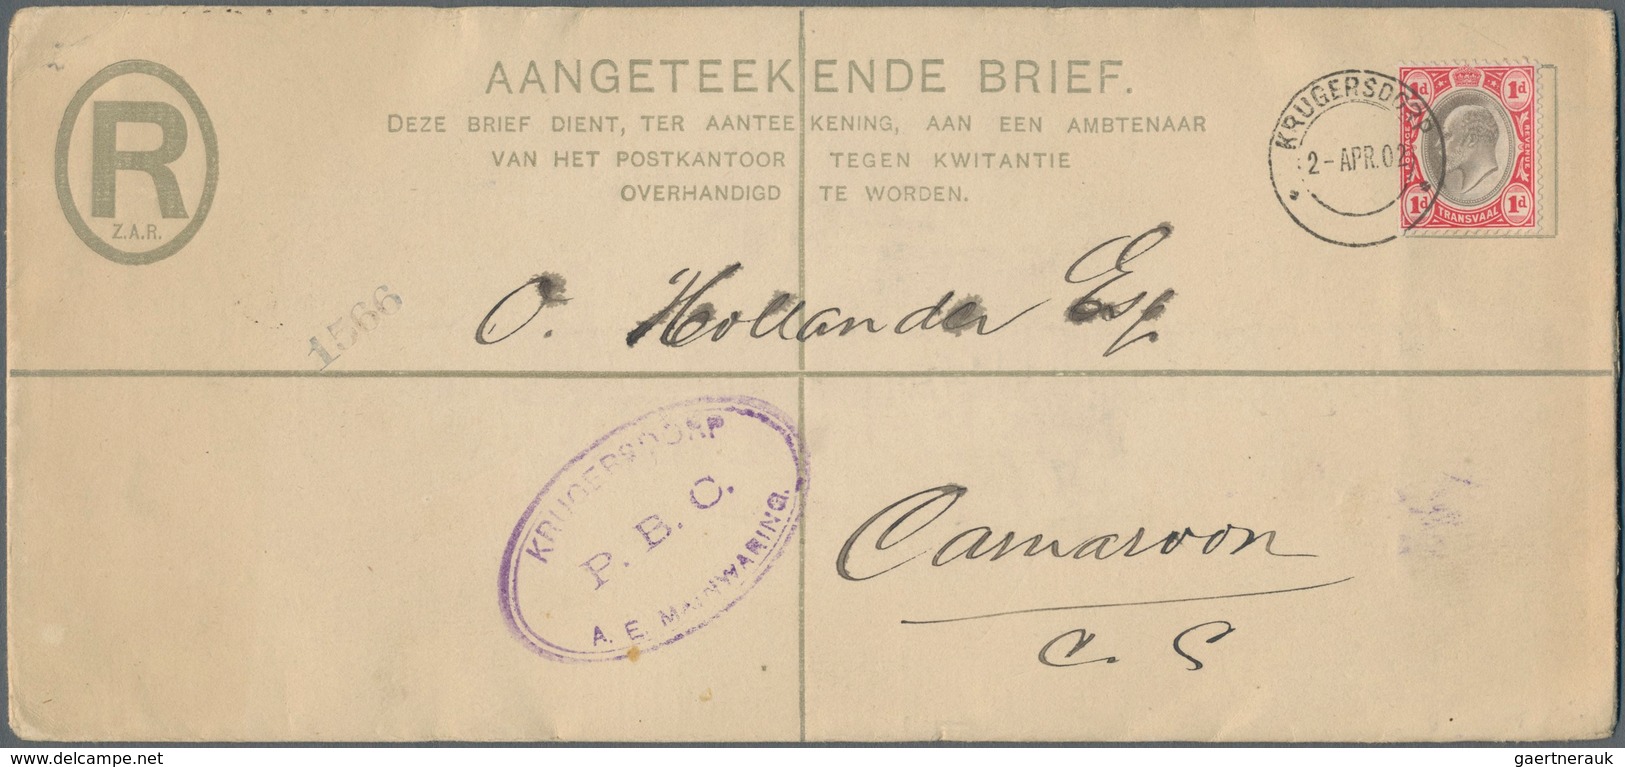 AANGETEEKENDE BRIEF.
DEZE BRIEF DIENT, TER AANTEEKENING, AAN EEN AMBTENAAR
VAN HET POSTKANTOOR TEGEN KWITANTIE
OVERHANDIGD TE WORDEN.
R
Z.A.R.
KRUGERSDORP
2-APR.02
1d 1d
POSTAGE REVENUE
1d 1d
TRANSVAAL
1566
O. Hollander Esq.
KRUGERSDORP
P. B. C.
A. E. MAINWARING.
Camaroon
C. S
www.delcampe.net
gaertnerauk